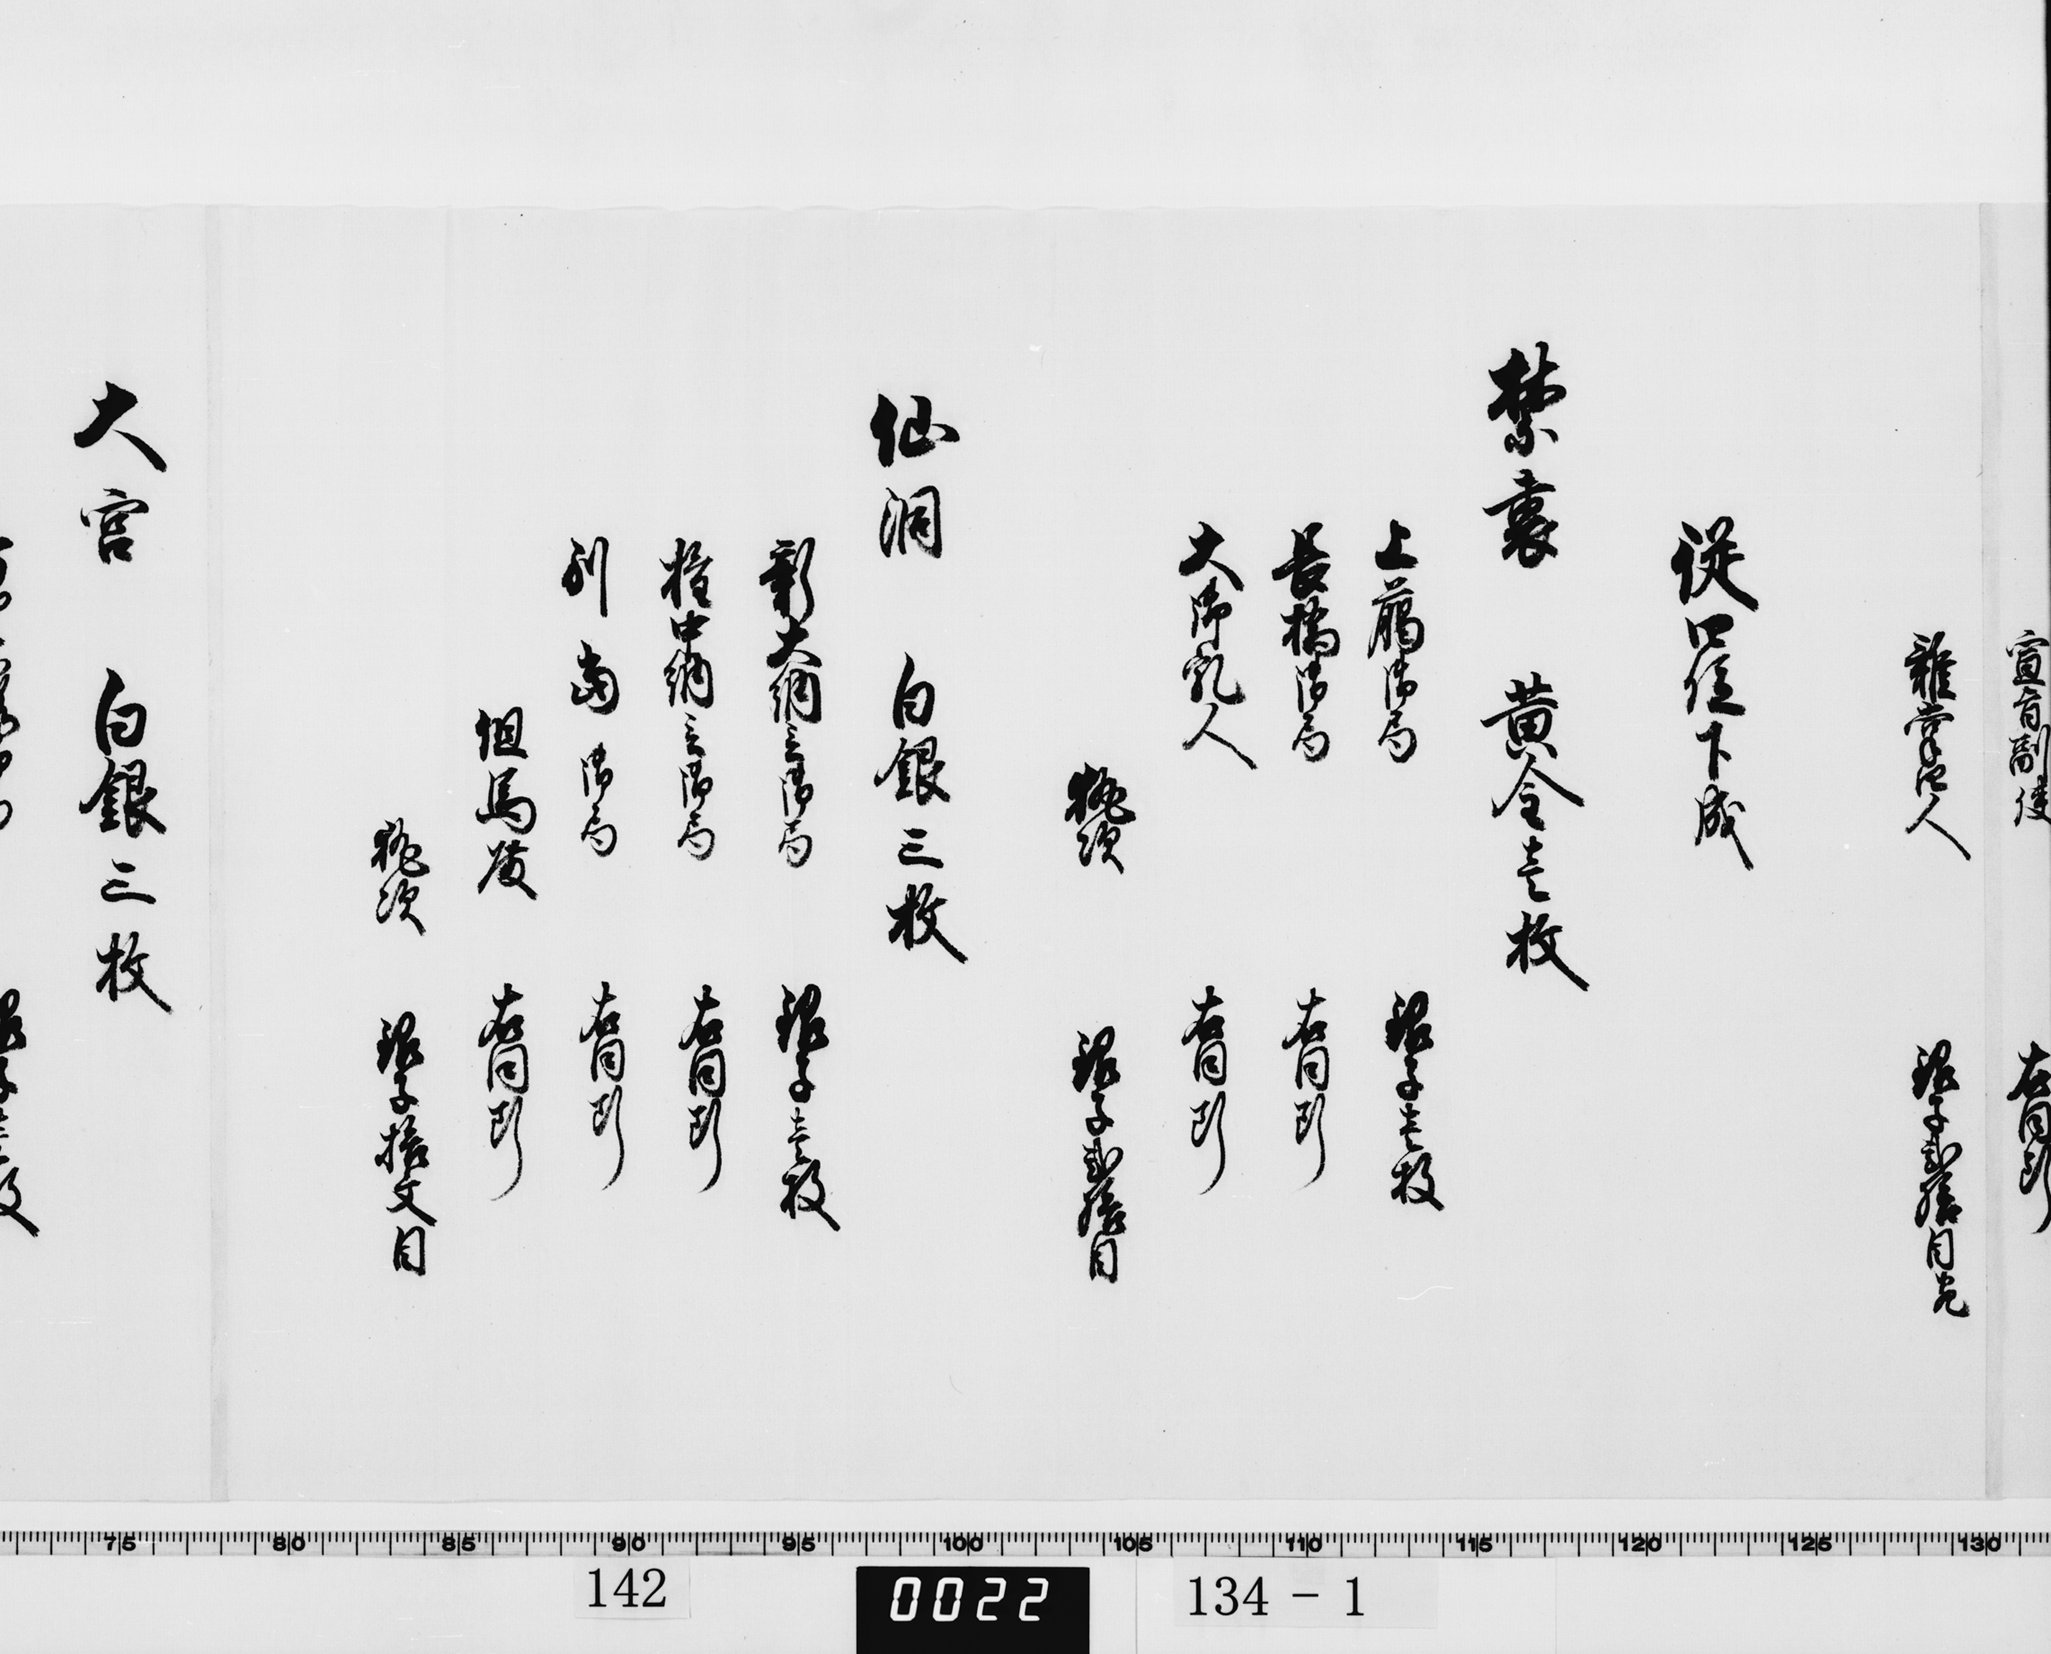 宣旨副使 右同断
雑掌四人 銀子弐拾目宛
従四位下成
禁裏 黄金壱枚
上臈御局 銀子壱枚
長橋御局 右同断
大御乳人 右同断
執次 銀子弐拾目
仙洞 白銀三枚
新大納言御局 銀子壱枚
権中納言御局 右同断
別当御局 右同断
但馬殿 右同断
執次 銀子拾文目
大宮 白銀三枚
銀子壱枚
75 80 85 90 95 100 105 110 115 120 125 130
142 0022 134-1